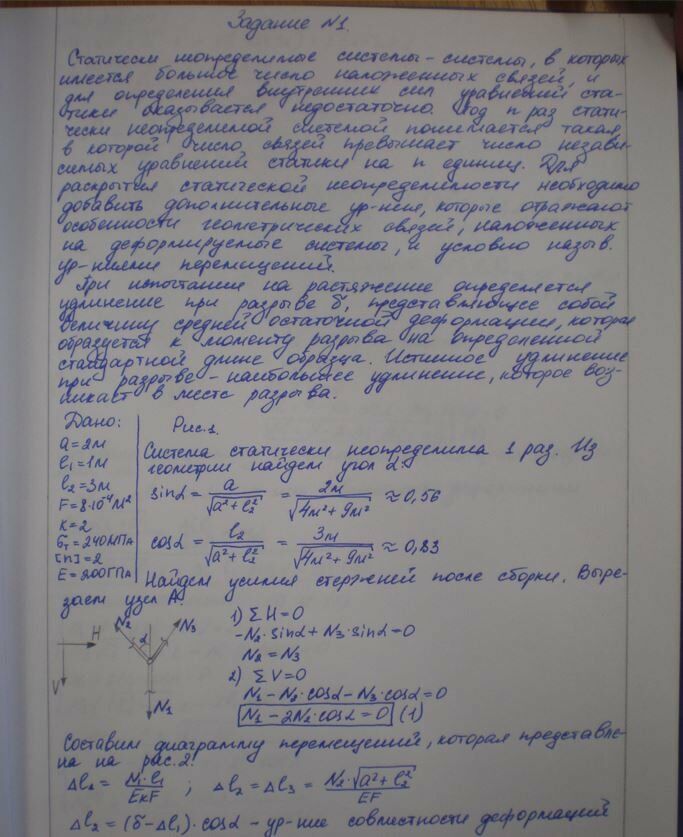 Задание N1.
Статически неопределимые системы - системы, в которых
имеется большое число наложенных связей, и
для определения внутренних сил уравнений ста-
тики оказывается недостаточно. Под n раз стати-
чески неопределимой системой понимается такая,
в которой число связей превышает число незави-
симых уравнений статики на n единиц. Для
раскрытия статической неопределимости необходимо
добавить дополнительные ур-ния, которые отражают
особенности геометрических связей, наложенных
на деформируемые системы, и условно назыв.
ур-ниями перемещений.
При испытании на растяжение определяется
удлинение при разрыве δ, представляющее собой
величину средней остаточной деформации, которая
образуется к моменту разрыва на определенной
стандартной длине образца. Истинное удлинение
при разрыве - наибольшее удлинение, которое воз-
никает в месте разрыва.
Дано:
a = 2м
l₁ = 1м
l₂ = 3м
F = 8·10⁻⁴м²
K = 2
σт = 240МПа
[n] = 2
E = 200ГПа
Рис.1.
Система статически неопределима 1 раз. Из
геометрии найдем угол α:
sinα = a/√(a²+l₂²) = 2м/√(4м²+9м²) ≈ 0,56
cosα = l₂/√(a²+l₂²) = 3м/√(4м²+9м²) ≈ 0,83
Найдем усилия стержней после сборки. Выре-
заем узел A:
H
V
N₂
α
N₃
N₁
1) ΣH=0
-N₂·sinα + N₃·sinα = 0
N₂ = N₃
2) ΣV=0
N₁ - N₂·cosα - N₃·cosα = 0
N₁ - 2N₂·cosα = 0 (1)
Составим диаграмму перемещений, которая представле-
на на рис.2.
Δl₁ = N₁·l₁/EKF ; Δl₂ = Δl₃ = N₂·√(a²+l₂²)/EF
Δl₂ = (δ-Δl₁)·cosα - ур-ние совместности деформаций